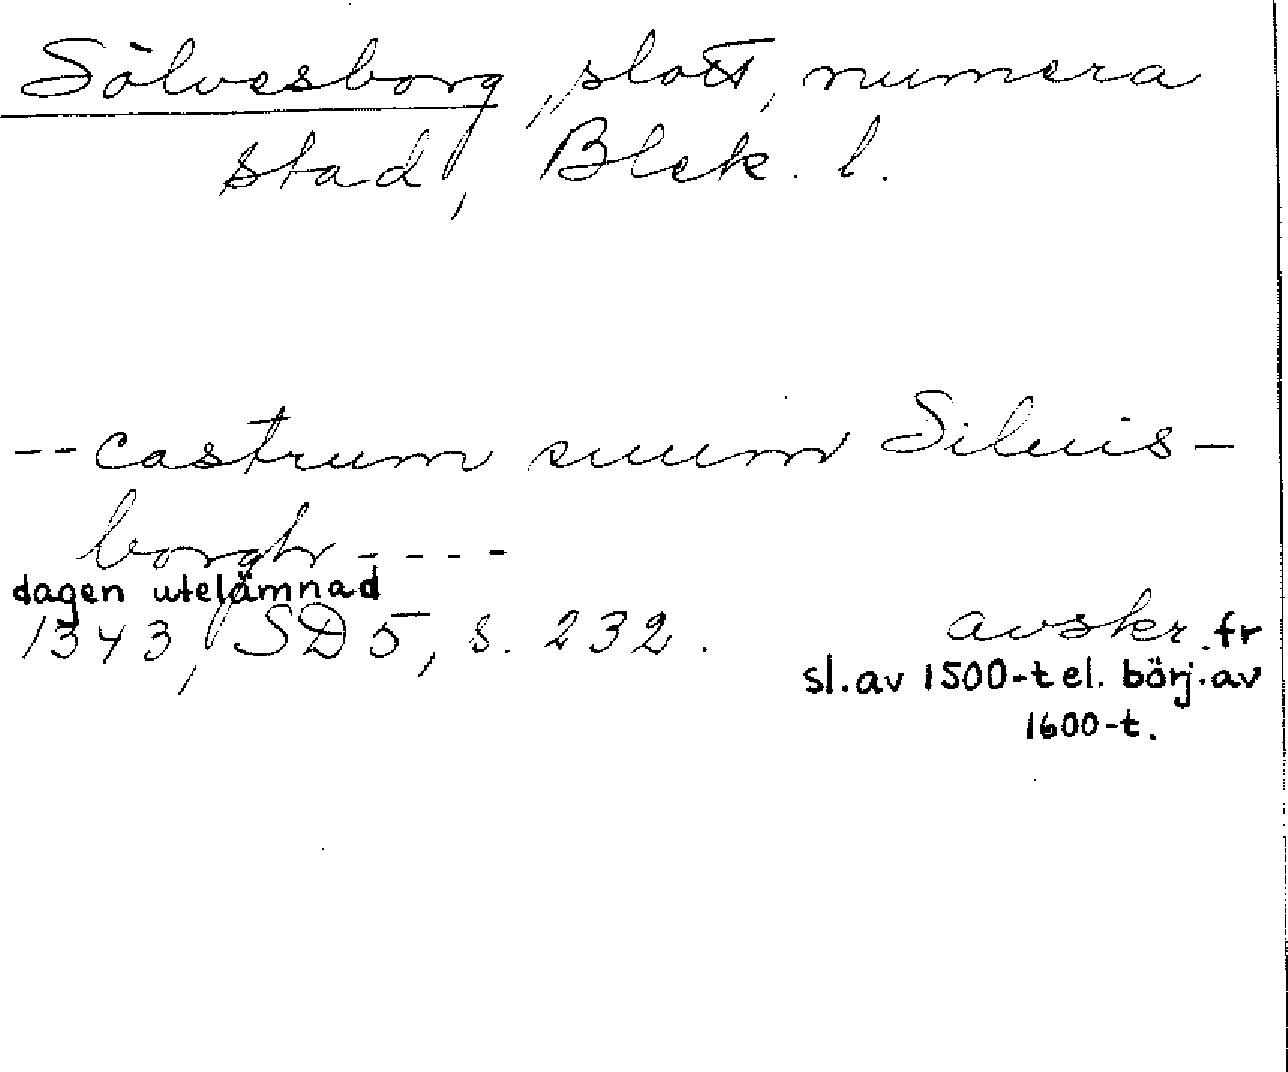 Sölvesborg, slott, numera
stad, Blek. l.
-- castrum suum Siluis-
borgh - - - -
dagen utelämnad
1343, SD 5, s. 232.
avskr. fr
sl. av 1500-t el. börj. av
1600-t.